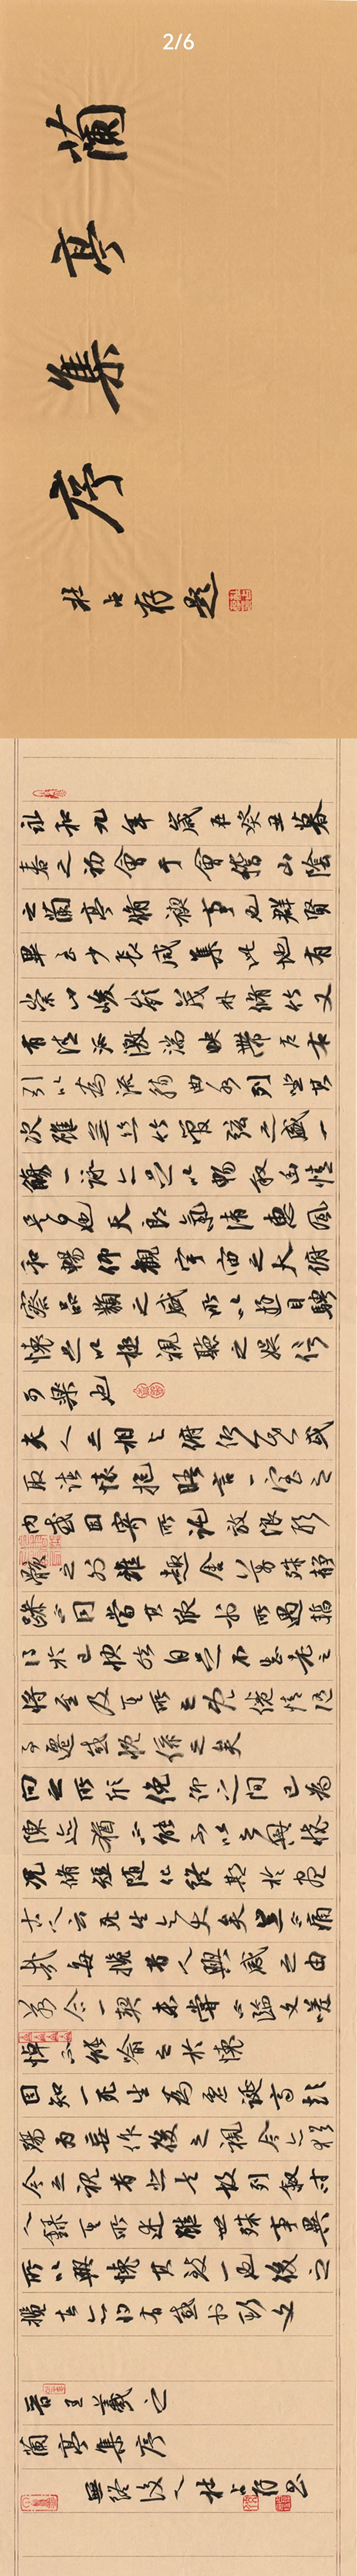 2/6
蘭亭集序
杜占存題
永和九年歲在癸丑暮
春之初會于會稽山陰
之蘭亭脩禊事也群賢
畢至少長咸集此地有
崇山峻嶺茂林脩竹又
有清流激湍映帶左右
引以為流觴曲水列坐其
次雖無絲竹管弦之盛一
觴一詠亦足以暢敘幽情
是日也天朗氣清惠風
和暢仰觀宇宙之大俯
察品類之盛所以遊目騁
懷足以極視聽之娛信
可樂也
夫人之相與俯仰一世或
取諸懷抱悟言一室之
內或因寄所託放浪形
骸之外雖趣舍萬殊靜
躁不同當其欣於所遇暫
得於己快然自足不知老之
將至及其所之既倦情隨
事遷感慨係之矣
向之所欣俛仰之間已為
陳迹猶不能不以之興懷
況脩短隨化終期於盡
古人云死生亦大矣豈不痛
哉每攬昔人興感之由
若合一契未嘗不臨文嗟
悼不能喻之於懷
固知一死生為虛誕齊彭
殤為妄作後之視今亦猶
今之視昔悲夫故列敘時
人錄其所述雖世殊事異
所以興懷其致一也後之
攬者亦將有感於斯文
晉王羲之
蘭亭集序
後人杜占存書